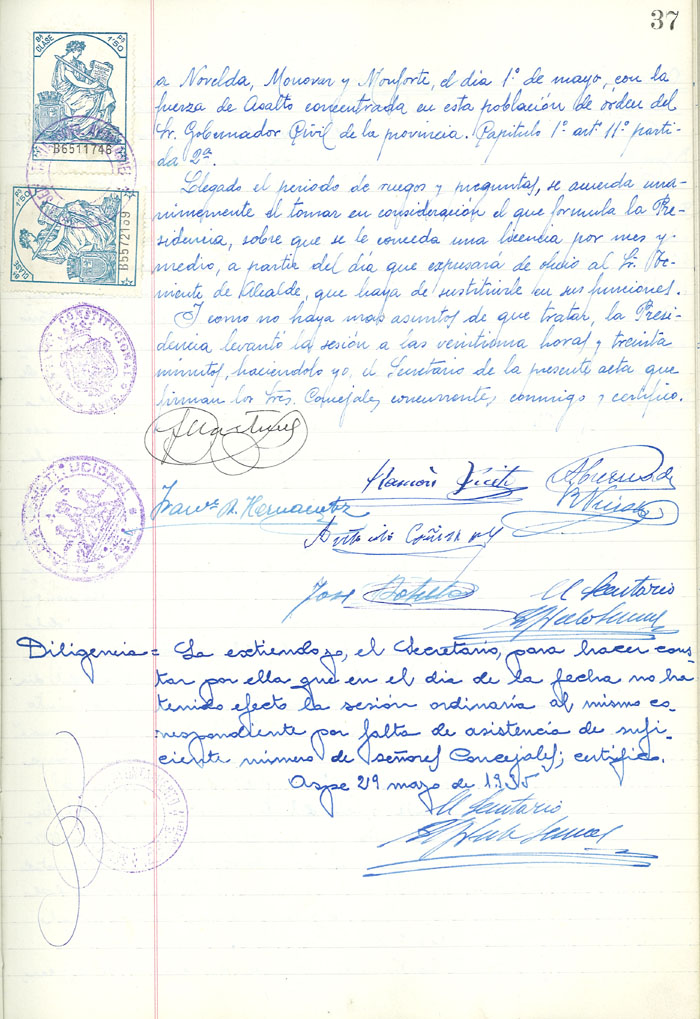 37
8ª CLASE
1'50 Pª
B6511748
8ª CLASE
1'50 Pª
B5572139
a Novelda, Monovar y Monforte, el día 1º de mayo, con la
fuerza de Asalto concentrada en esta población de órden del
Sr. Gobernador Civil de la provincia. Capítulo 1º artº 11º parti-
da 2ª.
Llegado el periodo de ruegos y preguntas, se acuerda una-
nimemente el tomar en consideración el que formula la Pre-
sidencia, sobre que se le conceda una licencia por mes y
medio, a partir del día que expresará de oficio al Sr. Te-
niente de Alcalde, que haya de sustituirle en sus funciones.
Y como no haya mas asuntos de que tratar, la Presi-
dencia levantó la sesión a las veintiuna horas y treinta
minutos, haciendolo yo, el Secretario de la presente acta que
firman los Sres. Concejales concurrentes, conmigo y certifico.
Ramón
Franco A. Hernandez
Antonio
José Botella
El Secretario
Diligencia = La extiendo yo, el Secretario, para hacer cons-
tar por ella que en el dia de la fecha no ha
tenido efecto la sesión ordinaria al mismo co-
rrespondiente por falta de asistencia de sufi-
ciente número de señores Concejales; certifico.
Aspe 29 mayo de 1935
El Secretario